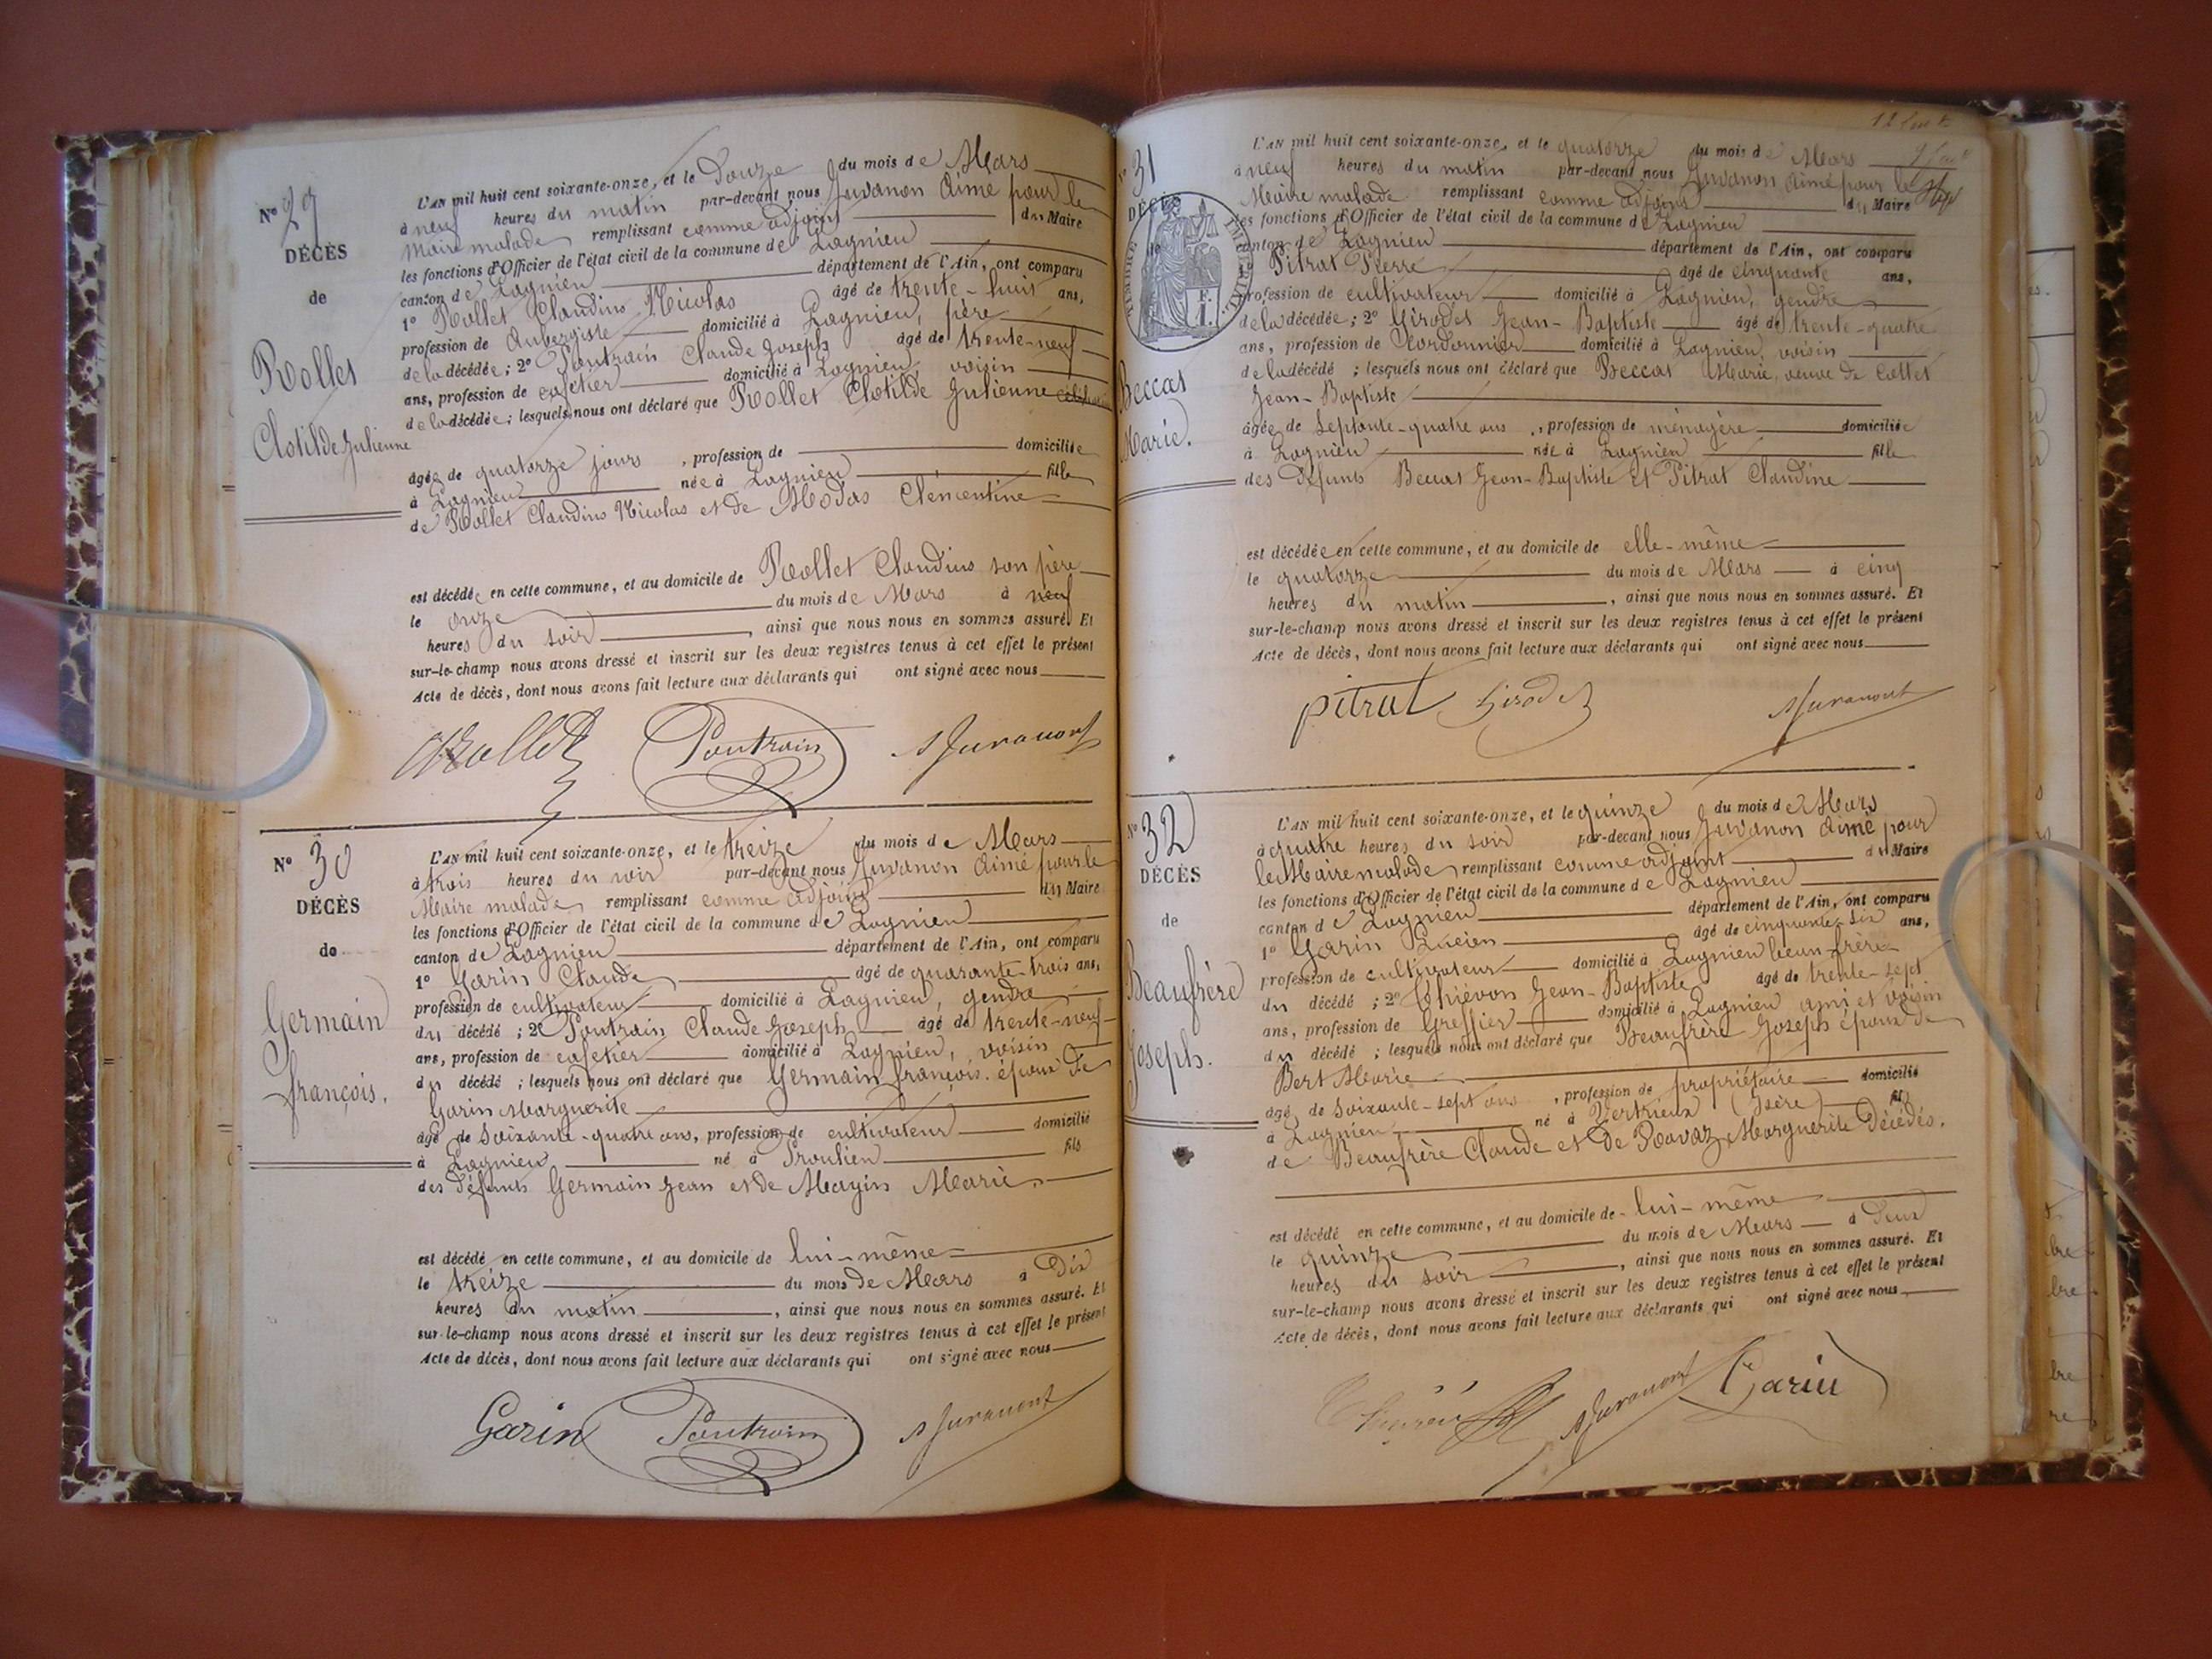 N° 29
DÉCÈS
de
Rollet
Clotilde Julienne
L'AN mil huit cent soixante-onze, et le Douze du mois de Mars
à neuf heures du matin par-devant nous Juvanon Aimé pour le
Maire malade remplissant comme adjoint du Maire
les fonctions d'Officier de l'état civil de la commune de Lagnieu
canton de Lagnieu département de l'Ain, ont comparu
1° Rollet Claudius Nicolas âgé de trente-huit ans,
profession de Aubergiste domicilié à Lagnieu, père
de la décédée; 2° Poutrain Claude Joseph âgé de trente-neuf
ans, profession de cafetier domicilié à Lagnieu, voisin
de la décédée; lesquels nous ont déclaré que Rollet Clotilde Julienne
âgée de quatorze jours, profession de domiciliée
à Lagnieu née à Lagnieu fille
de Rollet Claudius Nicolas et de Modas Clémentine
est décédée en cette commune, et au domicile de Rollet Claudius son père
le onze du mois de Mars à neuf
heures du soir, ainsi que nous nous en sommes assuré. Et
sur-le-champ nous avons dressé et inscrit sur les deux registres tenus à cet effet le présent
Acte de décès, dont nous avons fait lecture aux déclarants qui ont signé avec nous
Rollet Poutrain A Juvanont
N° 30
DÉCÈS
de
Germain
françois.
L'AN mil huit cent soixante-onze, et le treize du mois de Mars
à trois heures du soir par-devant nous Juvanon Aimé pour le
Maire malade remplissant comme adjoint du Maire
les fonctions d'Officier de l'état civil de la commune de Lagnieu
canton de Lagnieu département de l'Ain, ont comparu
1° Garin Claude âgé de quarante-trois ans,
profession de cultivateur domicilié à Lagnieu, gendre
du décédé; 2° Poutrain Claude Joseph âgé de trente-neuf
ans, profession de cafetier domicilié à Lagnieu, voisin
du décédé; lesquels nous ont déclaré que Germain françois, époux de
Garin Marguerite
âgé de Soixante-quatre ans, profession de cultivateur domicilié
à Lagnieu né à Proulieu fils
des défunts Germain Jean et de Mayin Marie.
est décédé en cette commune, et au domicile de lui-même
le treize du mois de Mars à Dix
heures du matin, ainsi que nous nous en sommes assuré. Et
sur-le-champ nous avons dressé et inscrit sur les deux registres tenus à cet effet le présent
Acte de décès, dont nous avons fait lecture aux déclarants qui ont signé avec nous
Garin Poutrain A Juvanont
N° 31
DÉCÈS
de
Beccat
Marie.
L'AN mil huit cent soixante-onze, et le quatorze du mois de Mars
à neuf heures du matin par-devant nous Juvanon Aimé pour le
Maire malade remplissant comme adjoint du Maire
les fonctions d'Officier de l'état civil de la commune de Lagnieu
canton de Lagnieu département de l'Ain, ont comparu
Pitrat Pierre âgé de cinquante ans,
profession de cultivateur domicilié à Lagnieu, gendre
de la décédée; 2° Girodet Jean-Baptiste âgé de trente-quatre
ans, profession de Cordonnier domicilié à Lagnieu, voisin
de la décédée; lesquels nous ont déclaré que Beccat Marie, veuve de Collet
Jean-Baptiste
âgée de Septante-quatre ans, profession de ménagère domiciliée
à Lagnieu née à Lagnieu fille
des Défunts Beccat Jean-Baptiste et Pitrat Claudine
est décédée en cette commune, et au domicile de elle-même
le quatorze du mois de Mars à cinq
heures du matin, ainsi que nous nous en sommes assuré. Et
sur-le-champ nous avons dressé et inscrit sur les deux registres tenus à cet effet le présent
Acte de décès, dont nous avons fait lecture aux déclarants qui ont signé avec nous
pitrat Girodet A Juvanont
N° 32
DÉCÈS
de
Beaufrère
Joseph.
L'AN mil huit cent soixante-onze, et le quinze du mois de Mars
à quatre heures du soir par-devant nous Juvanon Aimé pour
le Maire malade remplissant comme adjoint du Maire
les fonctions d'Officier de l'état civil de la commune de Lagnieu
canton de Lagnieu département de l'Ain, ont comparu
1° Garin Lucien âgé de cinquante-six ans,
profession de cultivateur domicilié à Lagnieu beau-frère
du décédé; 2° Thiévon Jean-Baptiste âgé de trente-sept
ans, profession de Greffier domicilié à Lagnieu ami et voisin
du décédé; lesquels nous ont déclaré que Beaufrère Joseph époux de
Bert Marie
âgé de Soixante-sept ans, profession de propriétaire domicilié
à Lagnieu né à Vertrieux (Isère) fils
de Beaufrère Claude et de Ravaz Marguerite Décédés.
est décédé en cette commune, et au domicile de lui-même
le quinze du mois de Mars à Deux
heures du soir, ainsi que nous nous en sommes assuré. Et
sur-le-champ nous avons dressé et inscrit sur les deux registres tenus à cet effet le présent
Acte de décès, dont nous avons fait lecture aux déclarants qui ont signé avec nous
A Juvanont Garin